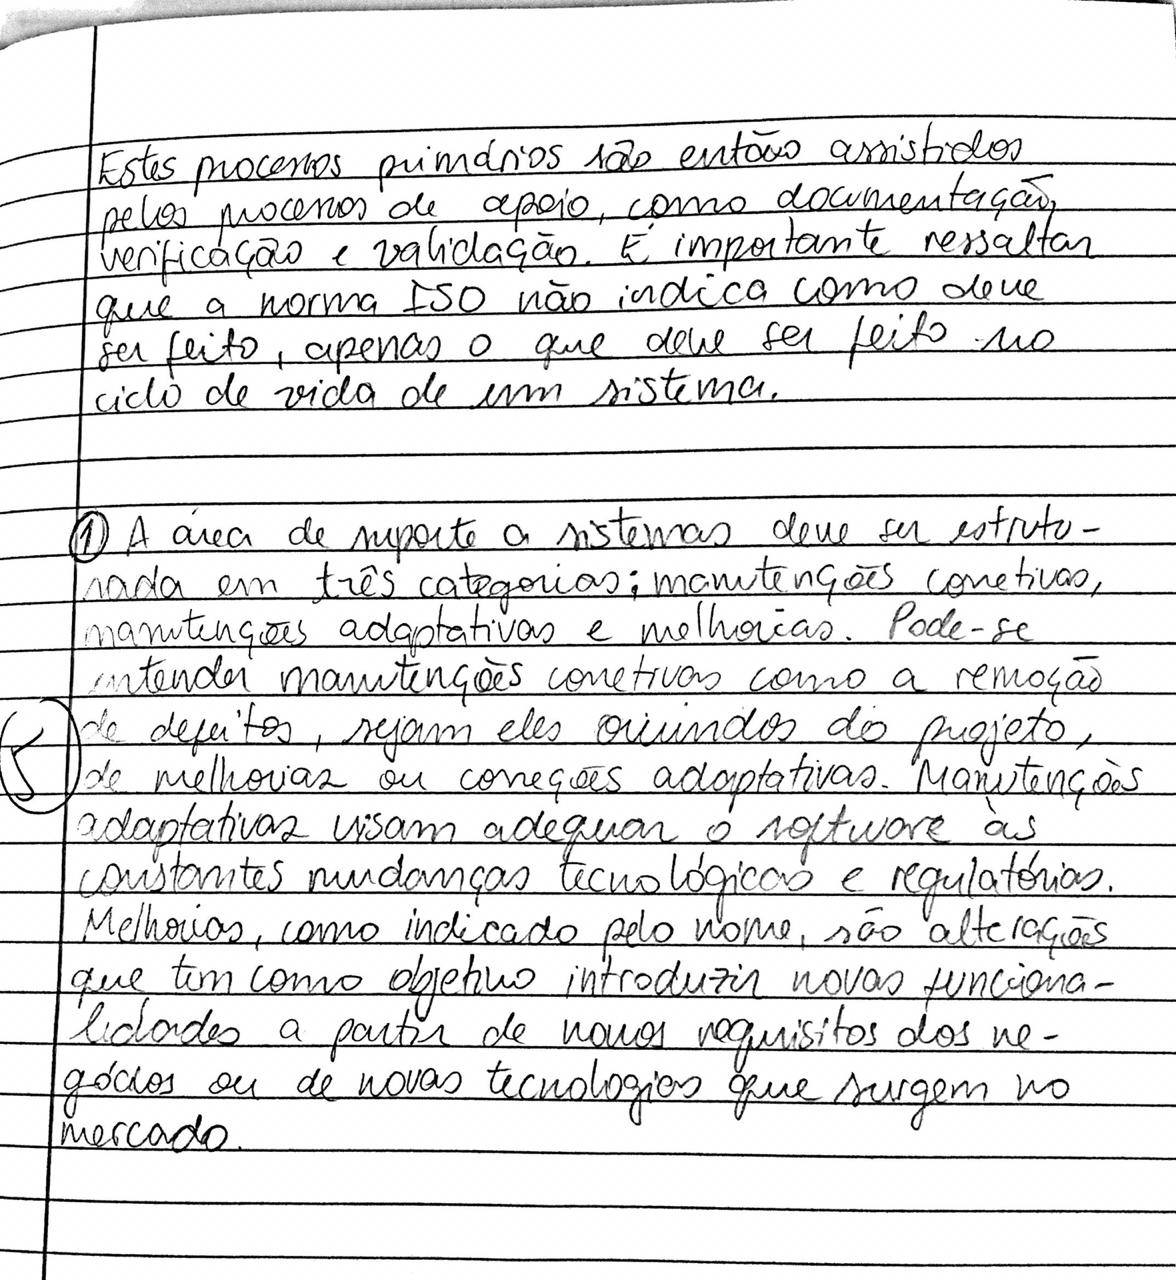 Estes processos primários são então assistidos
pelos processos de apoio, como documentação,
verificação e validação. É importante ressaltar
que a norma ISO não indica como deve
ser feito, apenas o que deve ser feito no
ciclo de vida de um sistema.
① A área de suporte a sistemas deve ser estrutu-
rada em três categorias: manutenções corretivas,
manutenções adaptativas e melhorias. Pode-se
entender manutenções corretivas como a remoção
de defeitos, sejam eles oriundos do projeto,
5
de melhorias ou correções adaptativas. Manutenções
adaptativas visam adequar o software às
constantes mudanças tecnológicas e regulatórias.
Melhorias, como indicado pelo nome, são alterações
que tem como objetivo introduzir novas funciona-
lidades a partir de novos requisitos dos ne-
gócios ou de novas tecnologias que surgem no
mercado.